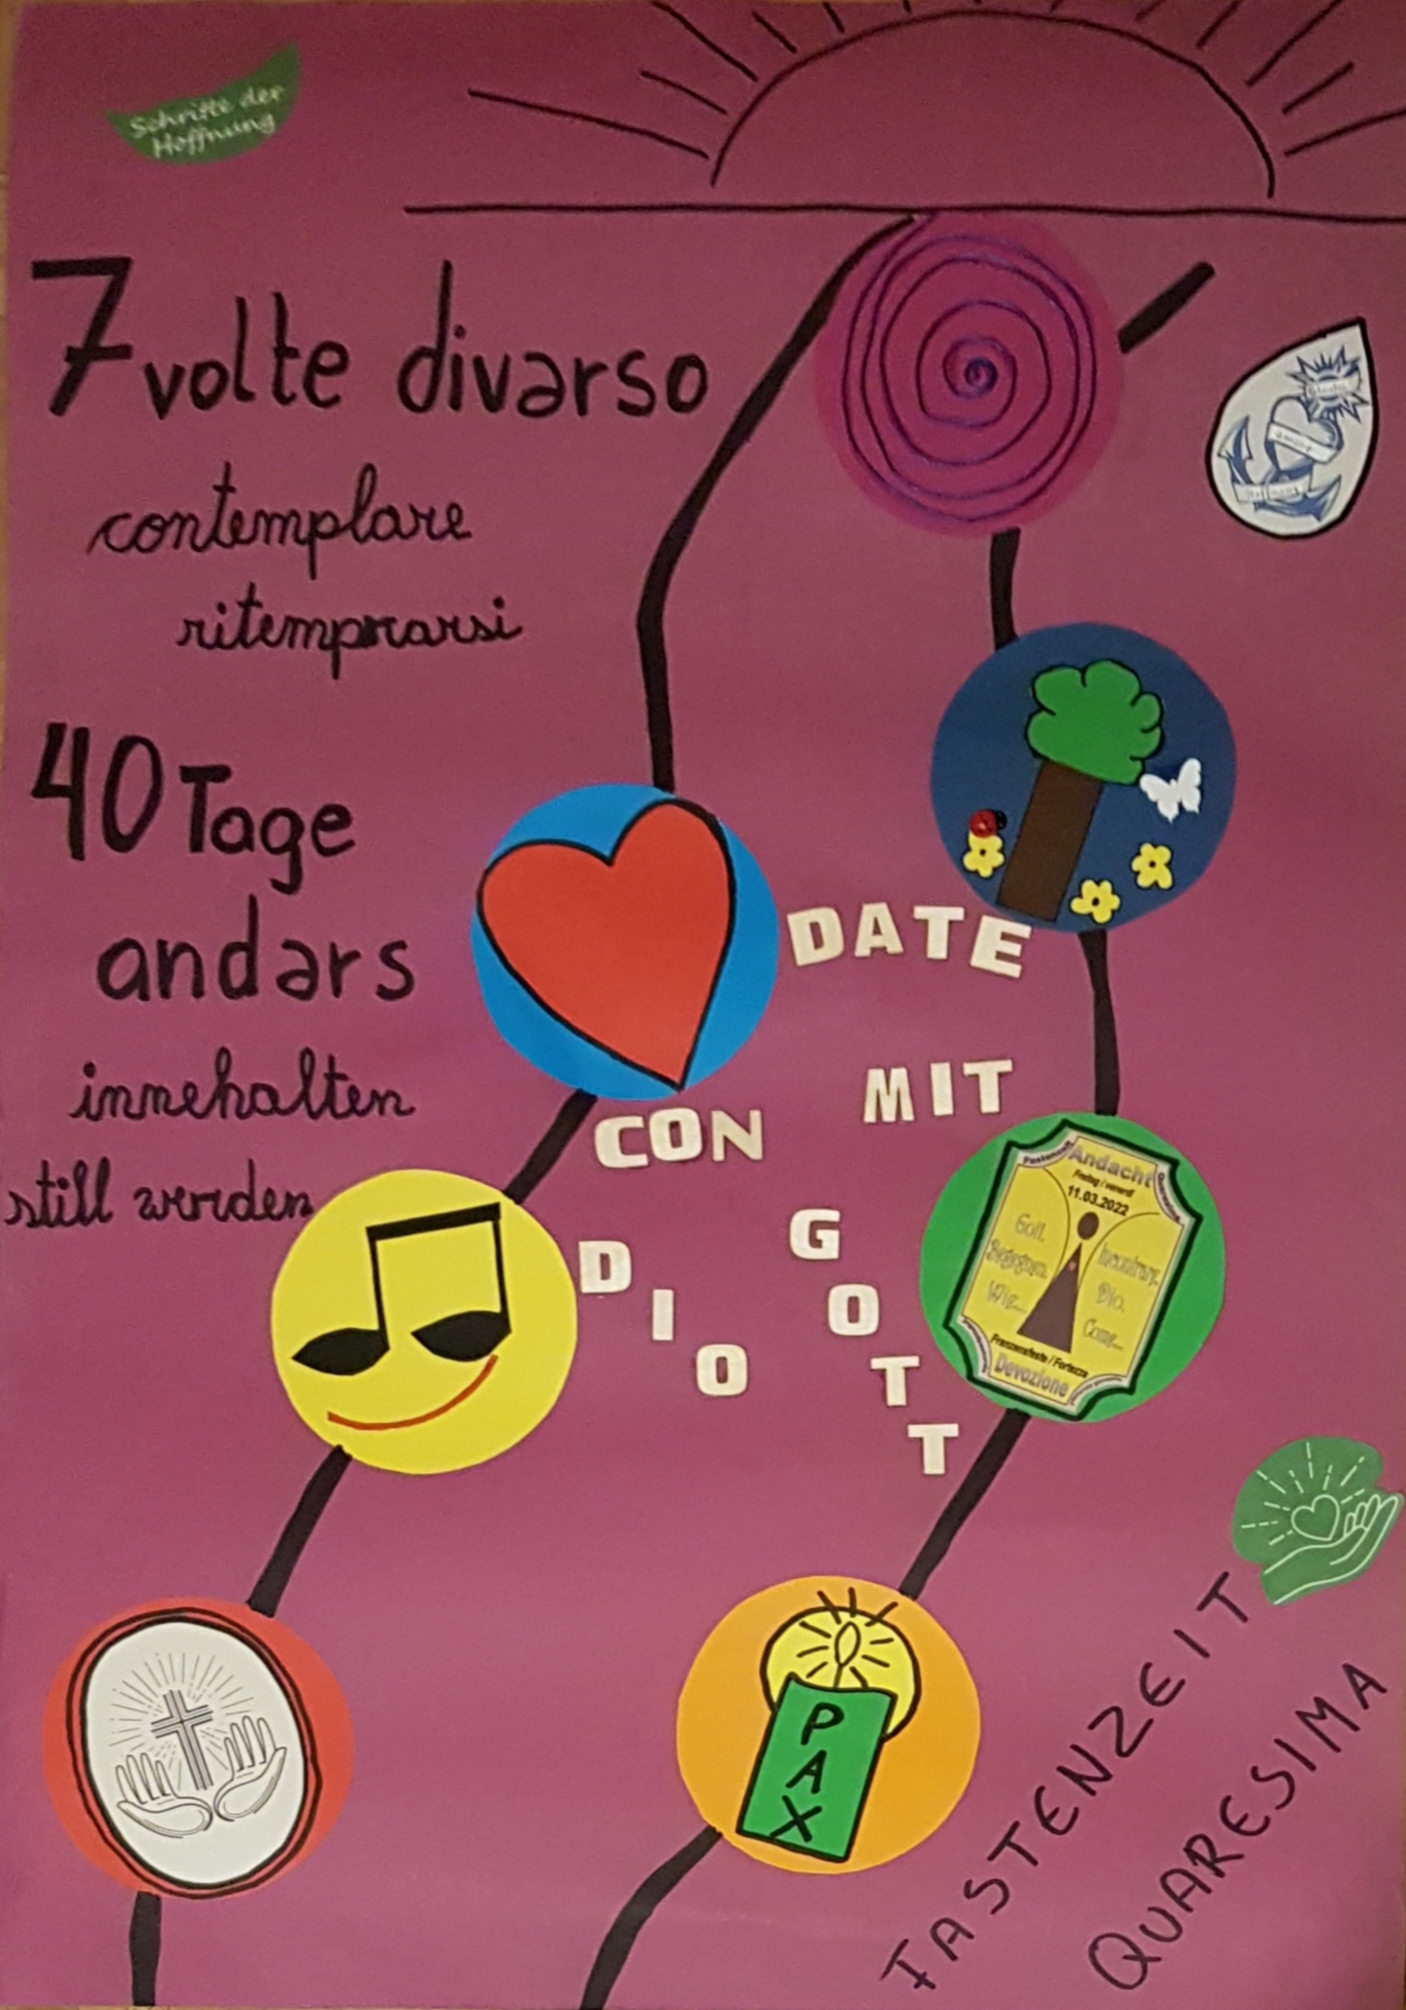 Schritte der
Hoffnung
7 volte divarso
contemplare
ritemprarsi
40 Tage
andars
innehalten
still werden
DATE
MIT
GOTT
CON
DIO
Andacht
Freitag / venerdì
11.03.2022
Gott.
Begegnen.
Wie...
Incontrare.
Dio.
Come...
Franzensfeste / Fortezza
Devozione
PAX
FASTENZEIT
QUARESIMA